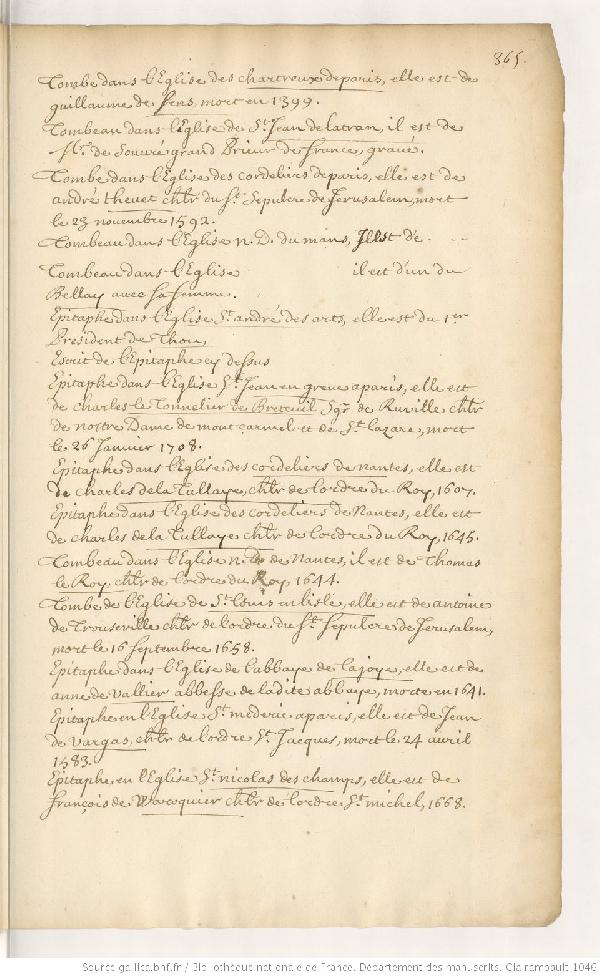 865.
Tombe dans l'Eglise des chartreux de paris, elle est de
guillaume de Sens, mort en 1399.
Tombeau dans l'Eglise de St. Jean de latran, il est de
Mr. de Souvré grand Prieur de france, gravé.
Tombe dans l'Eglise des cordeliers de paris, elle est de
andré thevet chlr du St. Sepulcre de Jerusalem, mort
le 23 novembre 1592.
Tombeau dans l'Eglise n. D. du mans, Il est de
Tombeau dans l'Eglise il est d'un du
Bellay avec sa femme.
Epitaphe dans l'Eglise St. andré des arts, elle est du 1er
President de Thou,
Escrit de l'Epitaphe cy dessus
Epitaphe dans l'Eglise St. Jean en greve a paris, elle est
de charles le Tonnelier de Breteuil Sgr. de Ruville chlr
de nostre Dame de mont carmel et de St. Lazare, mort
le 26 Janvier 1708.
Epitaphe dans l'Eglise des cordeliers de nantes, elle est
de charles de la Tullaye, chlr de l'ordre du Roy, 1607.
Epitaphe dans l'Eglise des cordeliers de Nantes, elle est
de charles de la Tullaye chlr de l'ordre du Roy 1645.
Tombeau dans l'Eglise n. D. de Nantes, il est de Thomas
le Roy chlr de l'ordre du Roy 1644.
Tombe de l'Eglise de St. Louis en lisle, elle est de antoine
de Trouseville chlr de l'ordre du St. Sepulcre de Jerusalem,
mort le 16 Septembre 1658.
Epitaphe dans l'Eglise de l'abbaye de la joye, elle est de
anne de vallier abbesse de la dite abbaye, morte en 1641.
Epitaphe en l'Eglise St. mederic a paris, elle est de Jean
de vargas, chlr de l'ordre St. Jacques, mort le 24 avril
1583.
Epitaphe en l'Eglise St. nicolas des champs, elle est de
françois de Warcquier chlr de l'ordre St. michel, 1668.
Source gallica.bnf.fr / Bibliothèque nationale de France. Département des manuscrits. Clairambault 1046